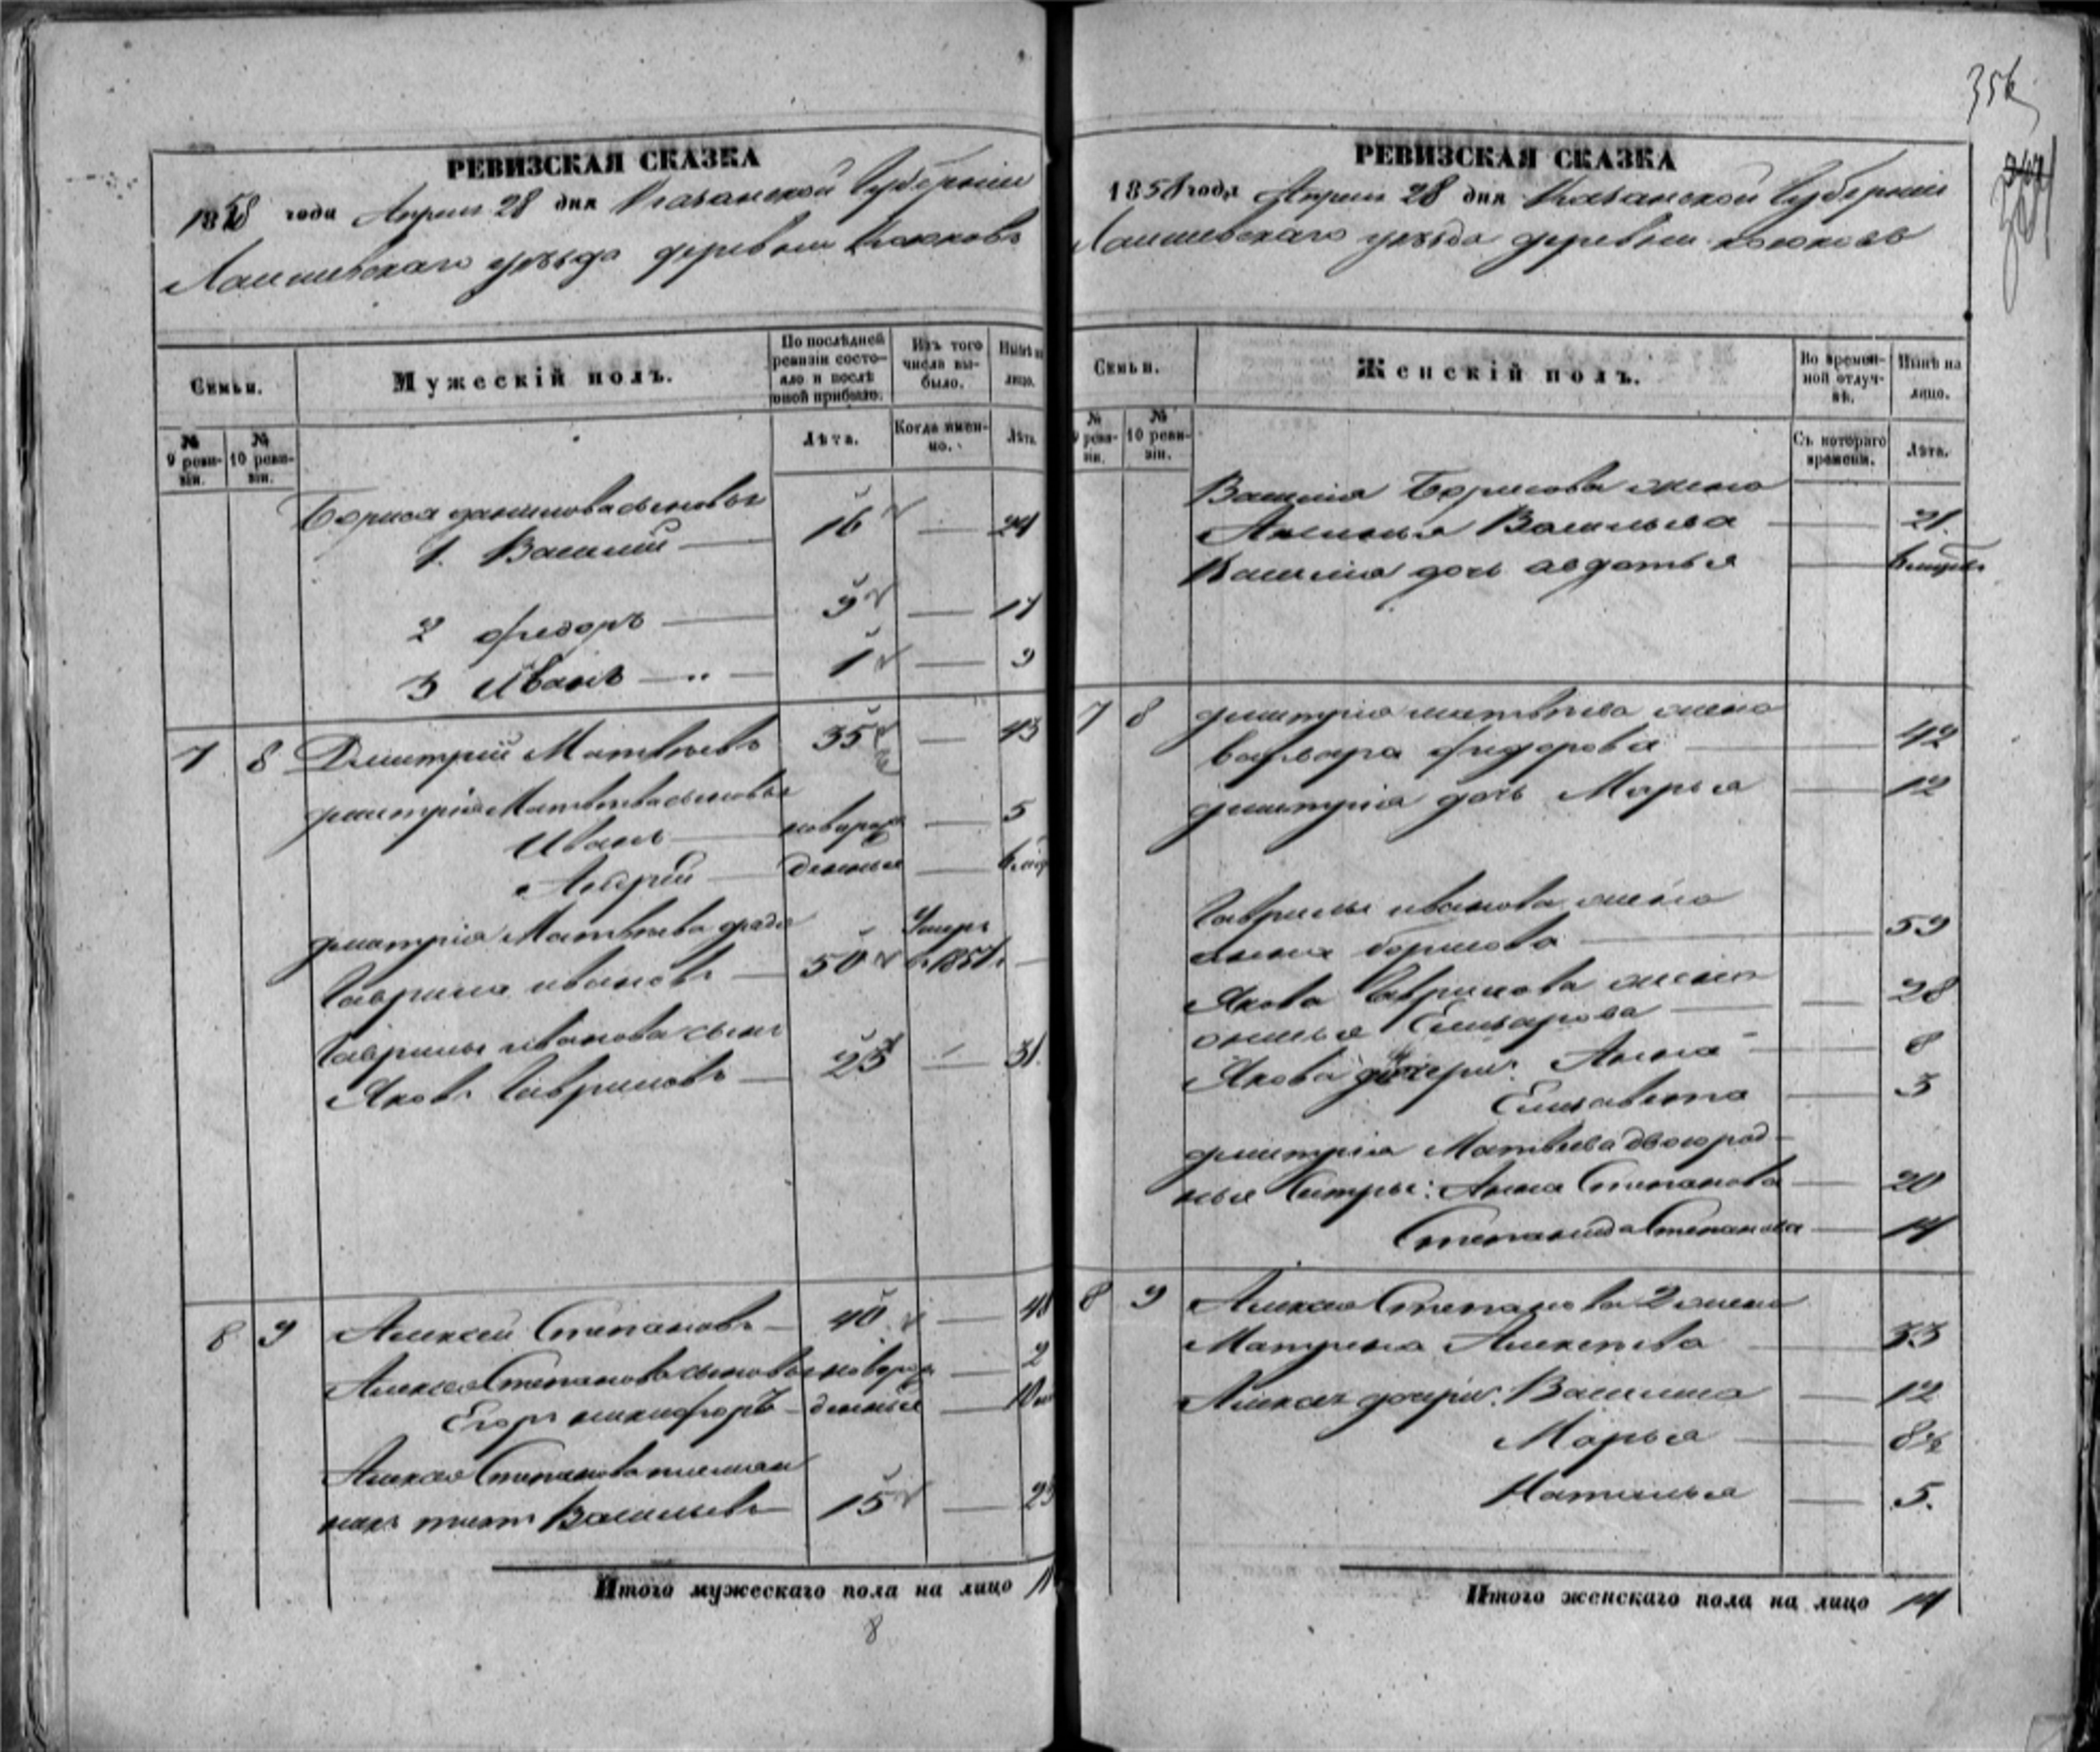 356
РЕВИЗСКАЯ СКАЗКА
1858 года Апреля 28 дня Казанской Губернiи
Лаишевскаго уѣзда деревни
Семьи.
Мужескiй полъ.
По послѣдней ревизiи состояло и послѣ оной прибыло.
Изъ того числа выбыло.
Нынѣ на лицо.
№ 9 ревизiи.
№ 10 ревизiи.
Лѣта.
Когда именно.
Лѣта.
Бориса Данилова сыновья
1. Василий — 16 — 24
2 Федоръ — 9 — 17
3 Иванъ — 1 — 9
7 8 Дмитрий Матвѣевъ 35 — 43
Дмитрiя Матвѣева сыновья
Иванъ — новорож — 5
Андрей — денные —
Дмитрiя Матвѣева дядя
Гаврила Ивановъ — 50 Умеръ в 1857 —
Гаврилы Иванова сынъ
Яковъ Гавриловъ — 23 — 31.
8 9 Алексей Степановъ — 40 — 48
Алексея Степанова сыновья новорож — 2
Егоръ Никифоръ — денные —
Алексея Степанова племян
никъ Васильевъ — 15 — 23
Итого мужескаго пола на лицо 11
8
РЕВИЗСКАЯ СКАЗКА
1858 года Апреля 28 дня Казанской Губернiи
Лаишевскаго уѣзда деревни
Семьи.
Женскiй полъ.
Во временной отлучкѣ.
Нынѣ на лицо.
№ 9 ревизiи.
№ 10 ревизiи.
Съ котораго времени.
Лѣта.
Василiя Борисова жена
Васильева — 21.
Василiя дочь Авдотья —
7 8 Дмитрiя Матвѣева жена
Варвара Федорова — 42
Дмитрiя дочь Марья — 12
Гаврилы Иванова жена
Анна Борисова — 59
Якова Гаврилова жена
— 28
Якова дочери: Анна — 8
Елизавета — 3
Дмитрiя Матвеева двоюрод-
ные Сестры: Анна Степанова — 20
Степанида Степанова — 14
8 9 Алексея Степанова 2 жена
Матрена Алексеева — 33
Алексея дочери: Василиса — 12
Марья —
Наталья — 5.
Итого женскаго пола на лицо 14